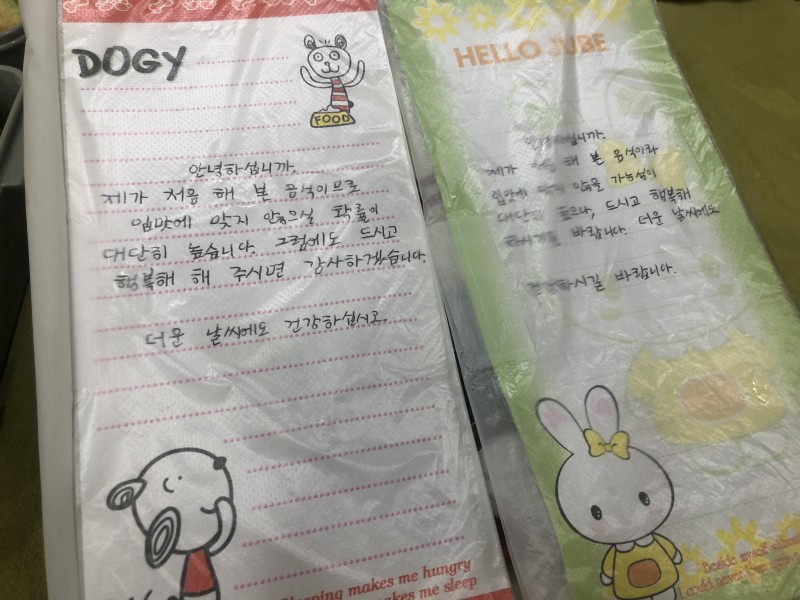 DOGY
FOOD
안녕하십니까.
제가 처음 해 본 음식이므로
입맛에 맞지 않으실 확률이
대단히 높습니다. 그럼에도 드시고
행복해 해 주시면 감사하겠습니다.
더운 날씨에도 건강하십시오.
makes me hungry
makes me sleep
HELLO JUBE
안녕하십니까.
제가 처음 해 본 음식이라
입맛에 맞지 않을 가능성이
대단히 높으나, 드시고 행복해
하시기를 바랍니다. 더운 날씨에도
건강하시길 바랍니다.
Beside myself
I could never